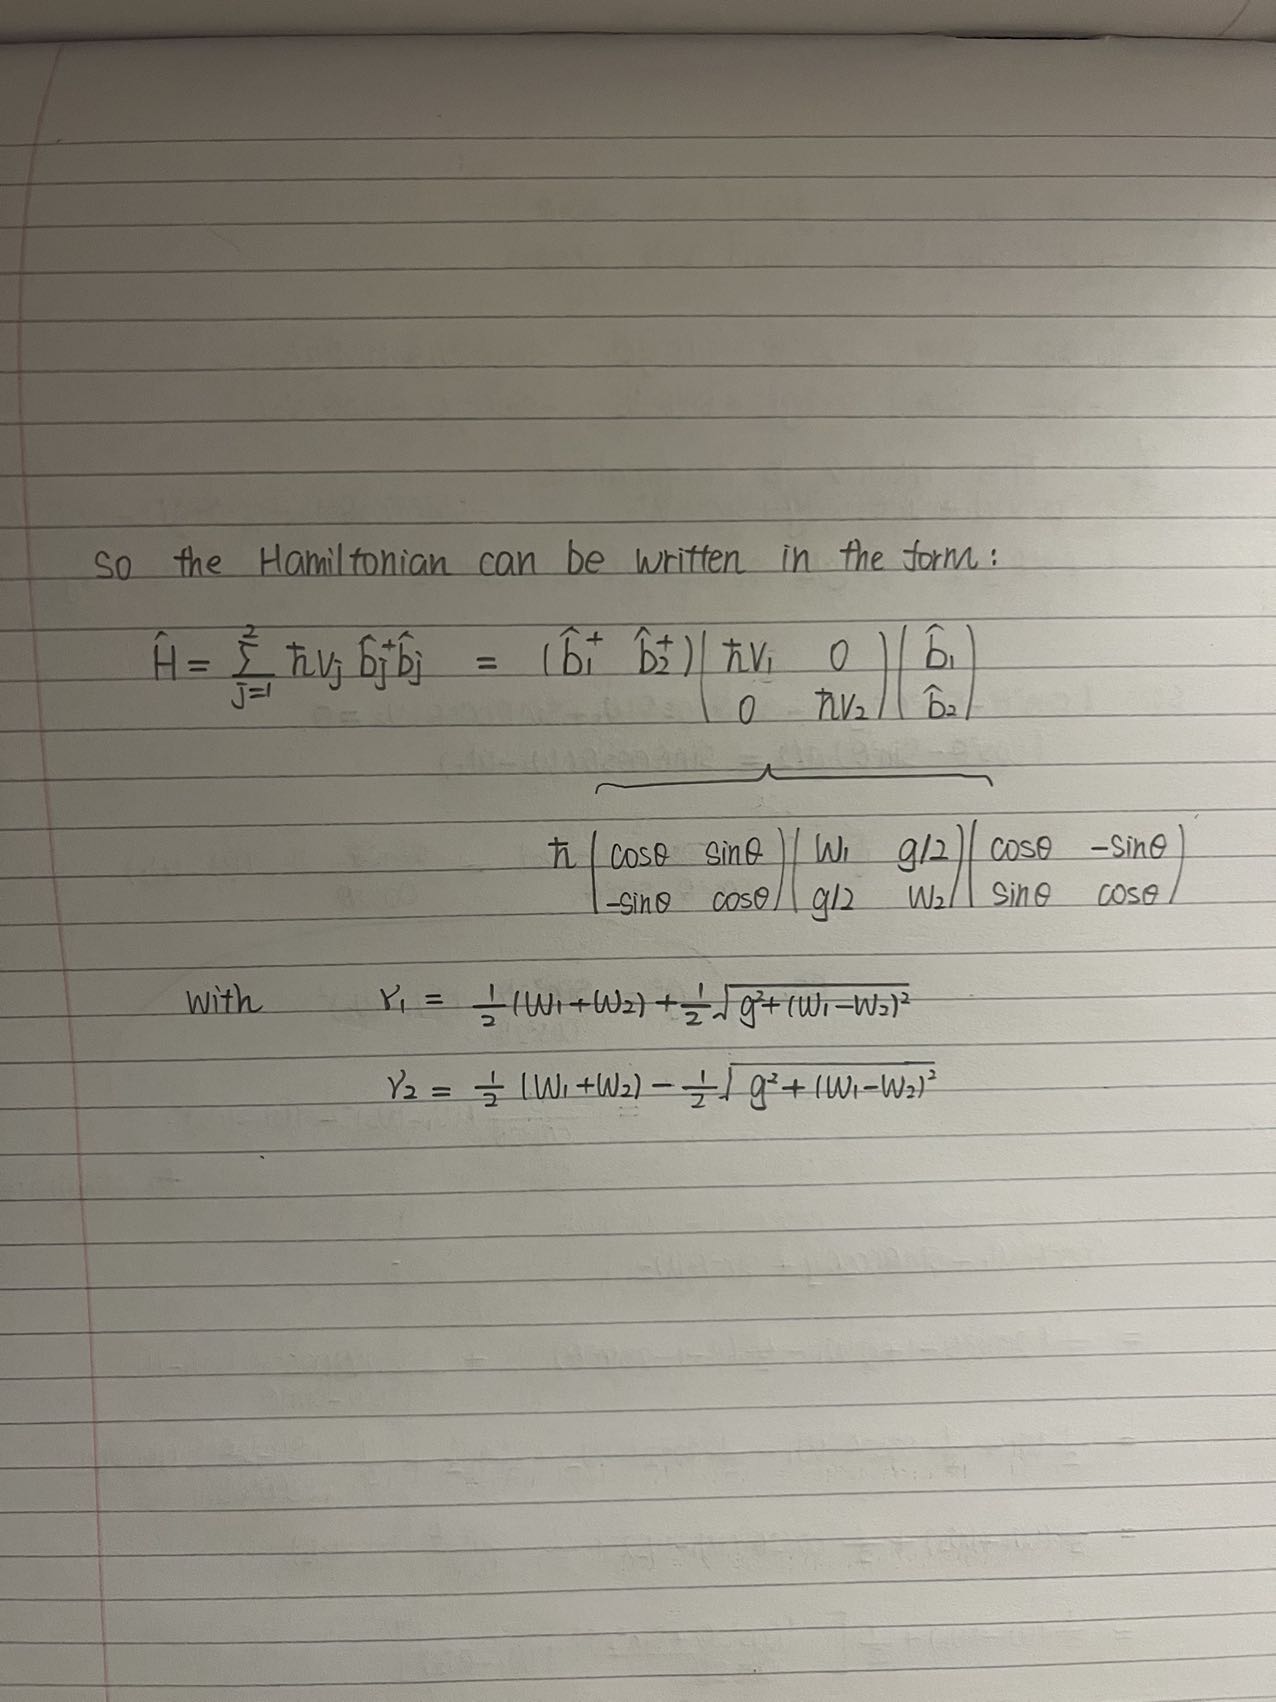 So the Hamiltonian can be written in the form:
Ĥ = ∑_{j=1}^{2} ħν_j b̂_j^+ b̂_j = (b̂_1^+ b̂_2^+) (ħν_1 0) (b̂_1)
(0 ħν_2) (b̂_2)
ħ (cosθ sinθ) (W_1 g/2) (cosθ -sinθ)
(-sinθ cosθ) (g/2 W_2) (sinθ cosθ)
with ν_1 = 1/2 (W_1 + W_2) + 1/2 √(g² + (W_1 - W_2)²)
ν_2 = 1/2 (W_1 + W_2) - 1/2 √(g² + (W_1 - W_2)²)